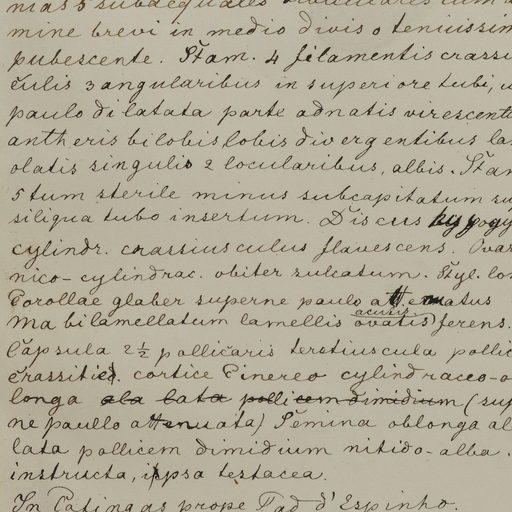 nias 5 subaequales
mine brevi in medio diviso tenuissim
pubescente. Stam. 4 filamentis crassi
culis 3 angularibus in superiore tubi, u
paulo dilatata parte adnatis virescenti
antheris bilobis lobis divergentibus la
olatis singulis 2 locularibus, albis. Stam
5 tum sterile minus subcapitatum su
siliqua tubo insertum. Discus hypogy
cylindr. crassiusculus flavescens. Ovar
nico-cylindrac. obiter sulcatum. Styl. lon
Corollae glaber superne paulo attenuatus
ma bilamellatum lamellis ovatis acutis ferens.
Capsula 2½ pollicaris tertiuscula pollic
crassitie cortice cinereo cylindraceo-o
longa ala lata pollicem dimidium (sup
ne paullo attenuata) Semina oblonga al
lata pollicem dimidium nitido-alba.
instructa, ipsa testacea.
In Catingas prope Tad d'Espinho.